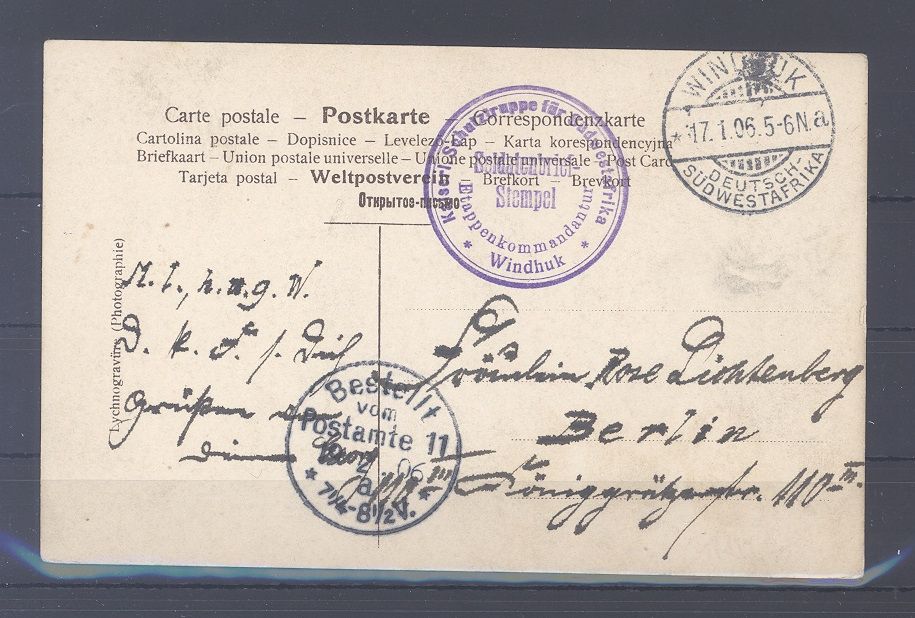 Carte postale – Postkarte – Correspondenzkarte
Cartolina postale – Dopisnice – Levelező-Lap – Karta korespondencyjna
Briefkaart – Union postale universelle – Unione postale universale – Post Card
Tarjeta postal – Weltpostverein – Brefkort – Brevkort
Открытое-письмо
Kaiserl. Schutztruppe für Südwestafrika
Soldatenbrief
Stempel
Etappenkommandantur
* Windhuk *
WINDHUK
* 17.1.06.5-6N. a
DEUTSCH-
SÜDWESTAFRIKA
Lychnogravüre (Photographie)
Grüßen
Fräulein Rose Lichtenberg
Berlin
Königgrätzerstr. 110 III.
Bestellt
vom
Postamte 11
06
* 7¼-8½V. *